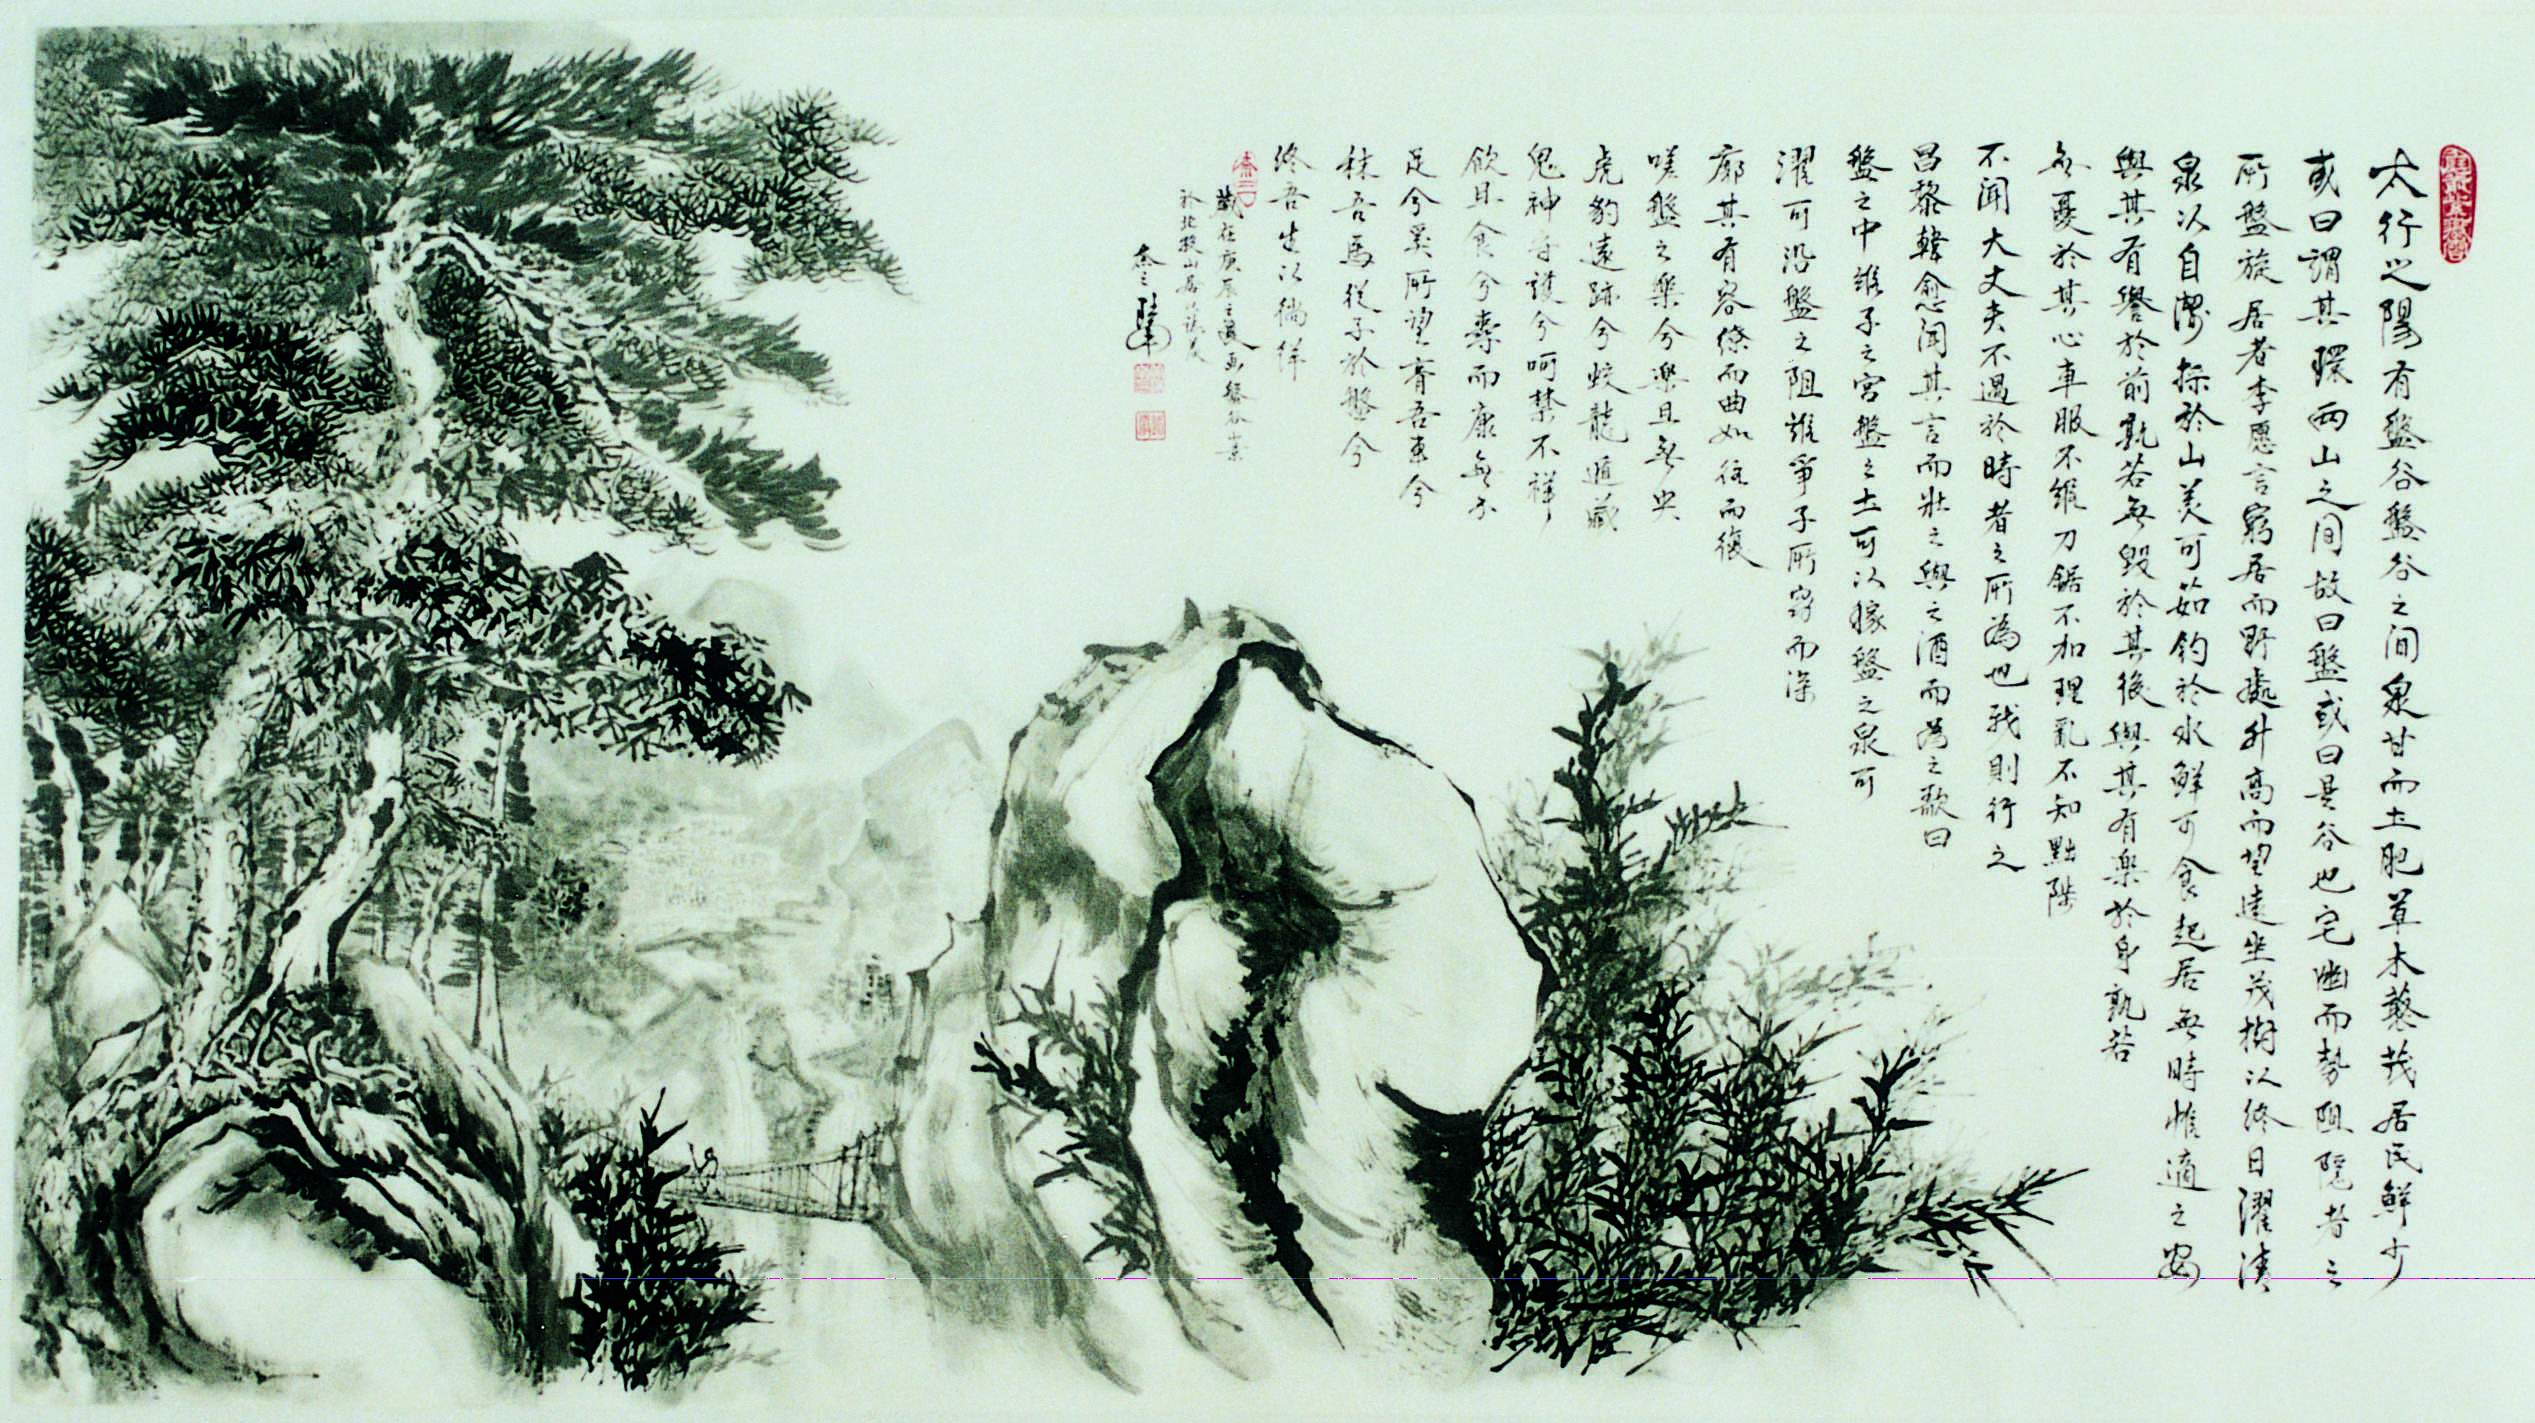 太行之陽有盤谷盤谷之間泉甘而土肥草木藂茂居民鮮少
或曰謂其環兩山之間故曰盤或曰是谷也宅幽而勢阻隱者之
所盤旋居者李愿言窮居而野處升高而望遠坐茂樹以終日濯清
泉以自潔採於山美可茹釣於水鮮可食起居無時惟適之安
與其有譽於前孰若無毀於其後與其有樂於身孰若
無憂於其心車服不維刀鋸不加理亂不知黜陟
不聞大丈夫不遇於時者之所為也我則行之
昌黎韓愈聞其言而壯之與之酒而為之歌曰
盤之中維子之宮盤之土可以稼盤之泉可
濯可沿盤之阻誰爭子所窈而深
廓其有容繚而曲如往而復
嗟盤之樂兮樂且無央
虎豹遠跡兮蛟龍遁藏
鬼神守護兮呵禁不祥
飲且食兮壽而康無不
足兮奚所望膏吾車兮
秣吾馬從子於盤兮
終吾生以徜徉
歲在庚辰之夏畫盤谷
於北投山居